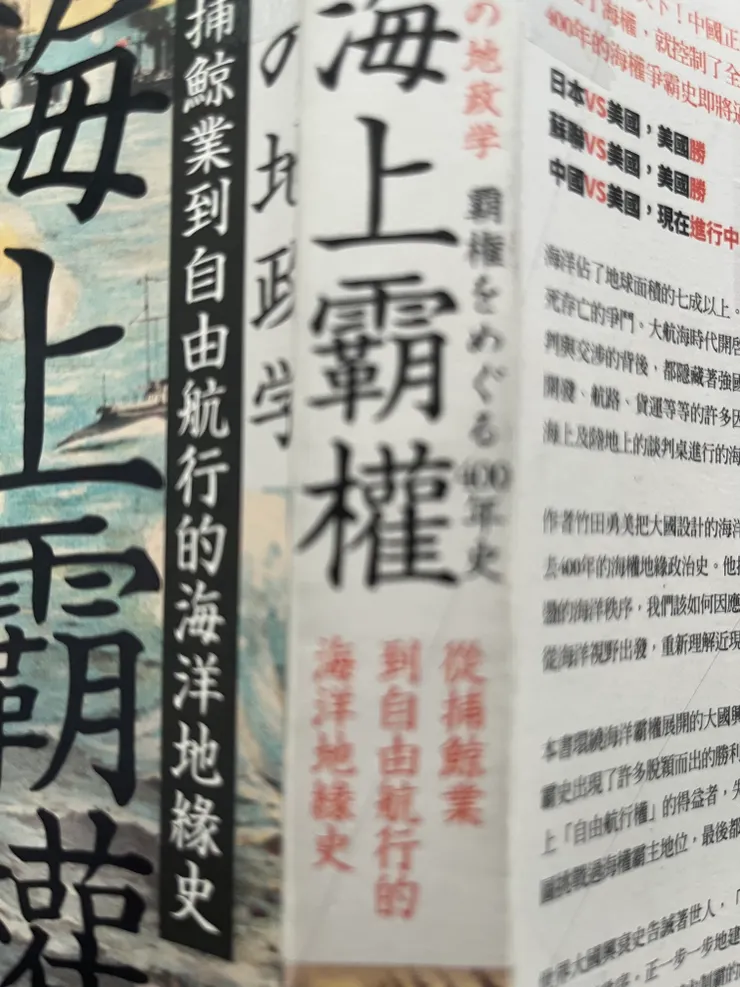 海上霸權
捕鯨業到自由航行的海洋地緣史
の地政学
海上霸權
の地政学
覇権をめぐる400年史
從捕鯨業
到自由航行的
海洋地緣史
天下！中國正
海權，就控制了全
400年的海權爭霸史即將
日本VS美國，美國勝
蘇聯VS美國，美國勝
中國VS美國，現在進行中
海洋佔了地球面積的七成以上。
死存亡的爭鬥。大航海時代開啟
判與交涉的背後，都隱藏著強國
開發、航路、貨運等等的許多因
海上及陸地上的談判桌進行的海
作者竹田勇美把大國設計的海洋
去400年的海權地緣政治史。他
的海洋秩序，我們該如何因應
從海洋視野出發，重新理解近現
本書環繞海洋霸權展開的大國興
霸史出現了許多脫穎而出的勝利
上「自由航行權」的得益者，失
挑戰過海權霸主地位，最後都
世界大國興衰史告誡著世人，「
正一步一步地建